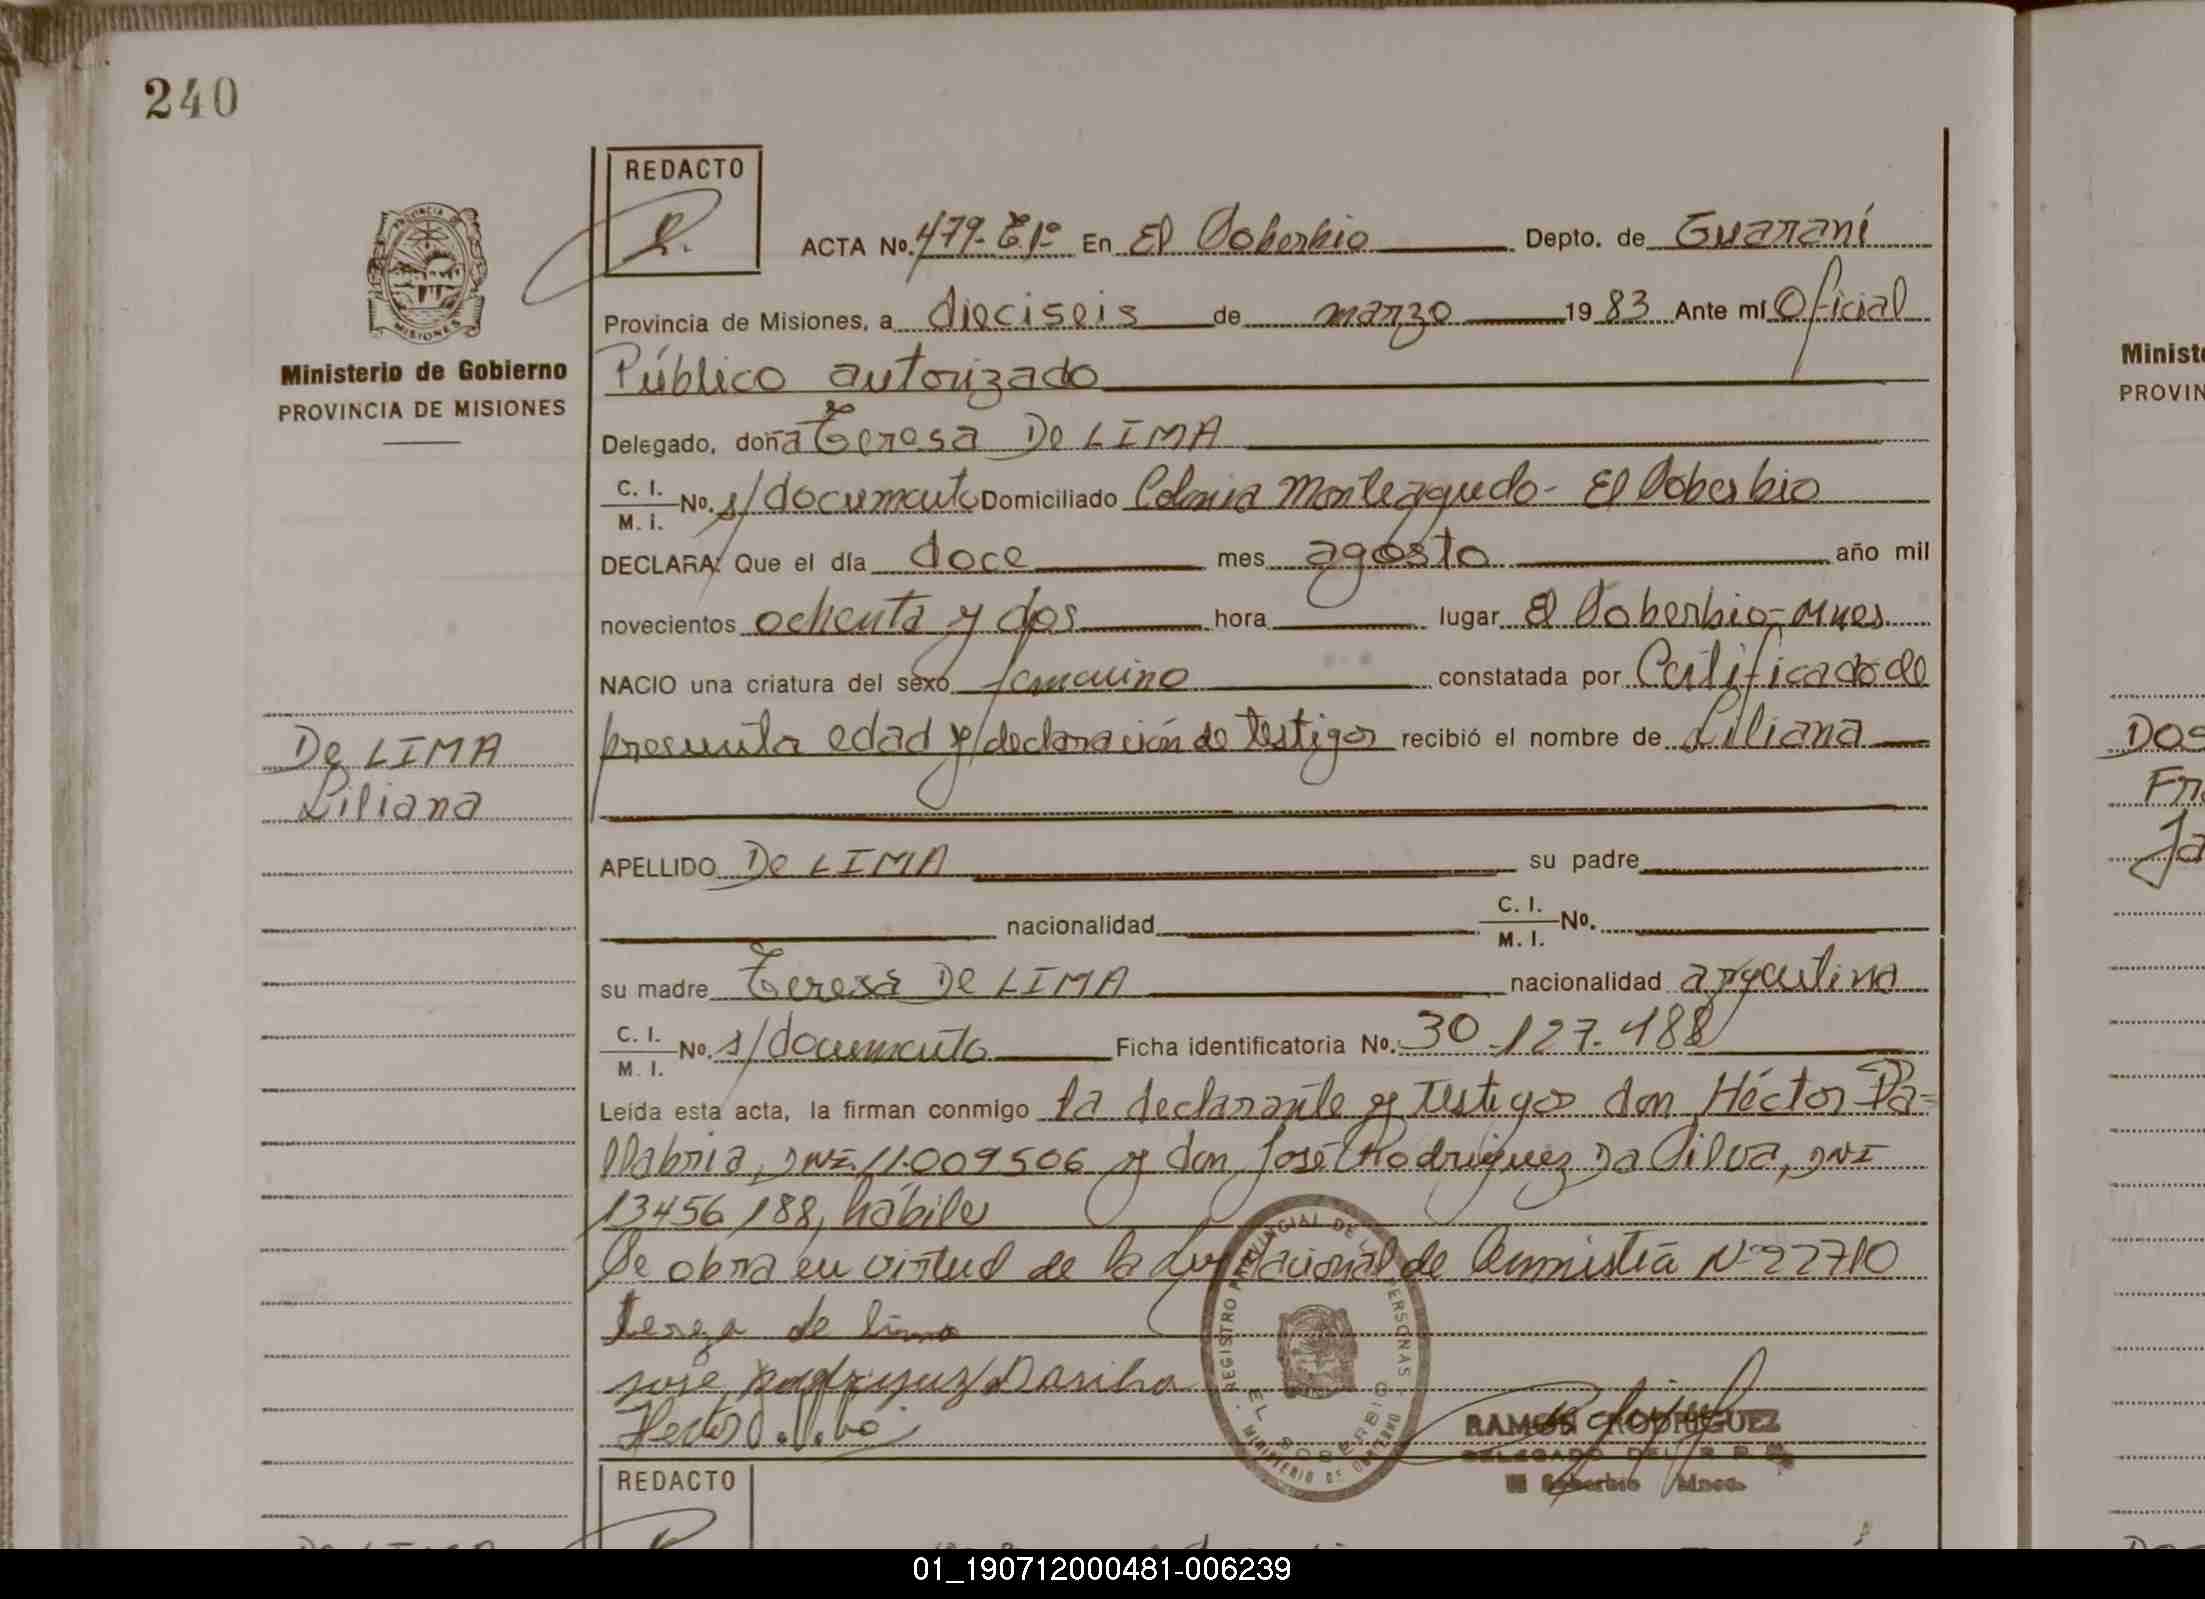 240
REDACTO
ACTA No. 479. T1º En El Soberbio Depto. de Guaraní
Provincia de Misiones, a dieciseis de marzo 1983 Ante mí Oficial
Público autorizado
Delegado, doña Teresa De LIMA
C. I.
M. I. No. s/documento Domiciliado Colonia Monteagudo - El Soberbio
DECLARA: Que el día doce mes agosto año mil
novecientos ochenta y dos hora lugar El Soberbio - Mnes
NACIO una criatura del sexo femenino constatada por Certificado de
presunta edad y declaración de testigos recibió el nombre de Liliana
APELLIDO De LIMA su padre
nacionalidad C. I.
M. I. No.
su madre Teresa De LIMA nacionalidad argentina
C. I.
M. I. No. s/documento Ficha identificatoria No. 30.127.188
Leída esta acta, la firman conmigo la declarante y testigos don Héctor Da-
llabria, DNI. 11.009506 y don José Rodriguez Da Silva, DNI
13456188, hábiles
Se obra en virtud de la Ley Nacional de Amnistía Nº 22710
Tereza de lima
jose Rodriguez Dasilva
Hector
REGISTRO PROVINCIAL DE LAS PERSONAS
EL SOBERBIO
MINISTERIO DE GOBIERNO
RAMON RODRIGUEZ
DELEGADO DEL R. P.
El Soberbio Mnes.
PROVINCIA DE
MISIONES
Ministerio de Gobierno
PROVINCIA DE MISIONES
De LIMA
Liliana
REDACTO
Minist
PROVIN
DOS
Fra
Ja
01_190712000481-006239